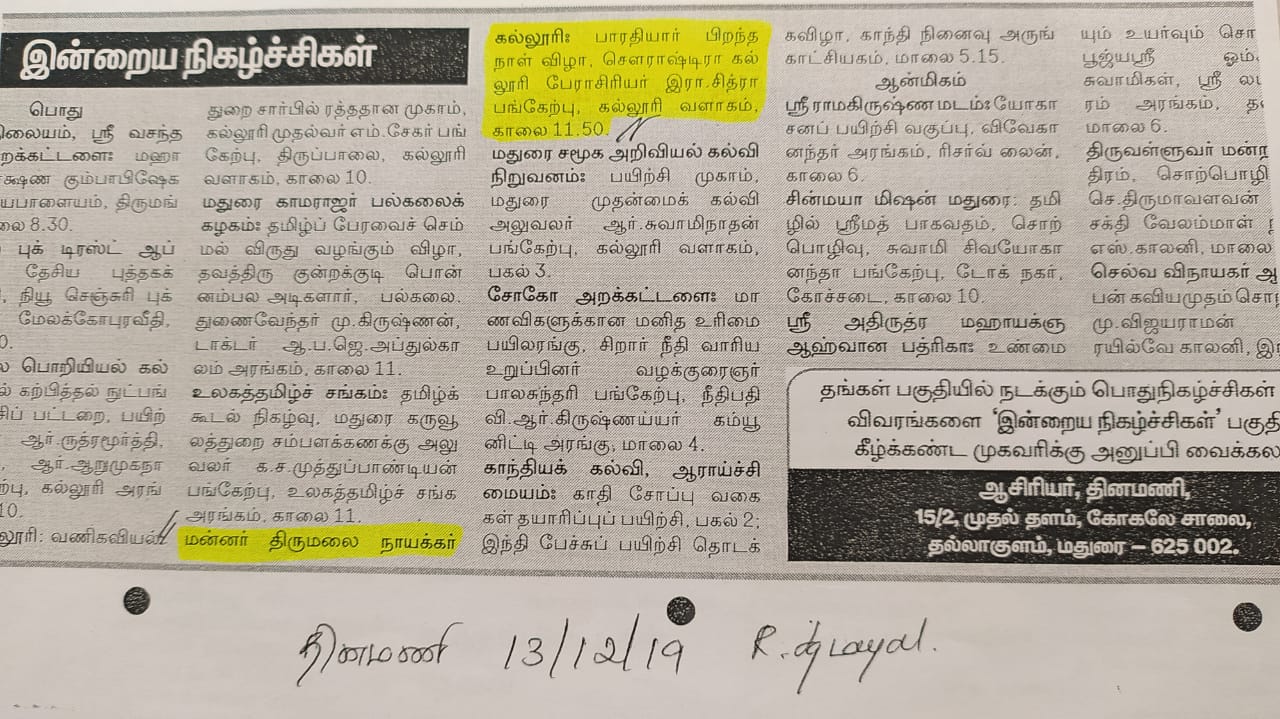 இன்றைய நிகழ்ச்சிகள்
பொது
நிலையம், ஸ்ரீ வசந்த
றக்கட்டளை: மஹா
க்ஷண கும்பாபிஷேக
யபாளையம், திருமங்
லை 8.30.
புக் டிரஸ்ட் ஆப்
தேசிய புத்தகக்
நியூ செஞ்சுரி புக்
மேலக்கோபுரவீதி,
0.
பொறியியல் கல்
ல் கற்பித்தல் நுட்பங்
சிப் பட்டறை, பயிற்
ஆர்.ருத்ரமூர்த்தி,
ஆர்.ஆறுமுகநா
ற்பு, கல்லூரி அரங்
10.
லூரி: வணிகவியல்
துறை சார்பில் ரத்ததான முகாம்,
கல்லூரி முதல்வர் எம்.சேகர் பங்
கேற்பு, திருப்பாலை, கல்லூரி
வளாகம், காலை 10.
மதுரை காமராஜர் பல்கலைக்
கழகம்: தமிழ்ப் பேரவைச் செம்
மல் விருது வழங்கும் விழா,
தவத்திரு குன்றக்குடி பொன்
னம்பல அடிகளார், பல்கலை.
துணைவேந்தர் மு.கிருஷ்ணன்,
டாக்டர் ஆ.ப.ஜெ.அப்துல்கா
லம் அரங்கம், காலை 11.
உலகத்தமிழ்ச் சங்கம்: தமிழ்க்
கூடல் நிகழ்வு, மதுரை கருவூ
லத்துறை சம்பளக்கணக்கு அலு
வலர் க.ச.முத்துப்பாண்டியன்
பங்கேற்பு, உலகத்தமிழ்ச் சங்க
அரங்கம், காலை 11.
மன்னர் திருமலை நாயக்கர்
கல்லூரி: பாரதியார் பிறந்த
நாள் விழா, சௌராஷ்டிரா கல்
லூரி பேராசிரியர் இரா.சித்ரா
பங்கேற்பு, கல்லூரி வளாகம்,
காலை 11.50.
மதுரை சமூக அறிவியல் கல்வி
நிறுவனம்: பயிற்சி முகாம்,
மதுரை முதன்மைக் கல்வி
அலுவலர் ஆர்.சுவாமிநாதன்
பங்கேற்பு, கல்லூரி வளாகம்,
பகல் 3.
சோகோ அறக்கட்டளை: மா
ணவிகளுக்கான மனித உரிமை
பயிலரங்கு, சிறார் நீதி வாரிய
உறுப்பினர் வழக்குரைஞர்
பாலசுந்தரி பங்கேற்பு, நீதிபதி
வி.ஆர்.கிருஷ்ணய்யர் கம்யூ
னிட்டி அரங்கு, மாலை 4.
காந்தியக் கல்வி, ஆராய்ச்சி
மையம்: காதி சோப்பு வகை
கள் தயாரிப்புப் பயிற்சி, பகல் 2;
இந்தி பேச்சுப் பயிற்சி தொடக்
கவிழா, காந்தி நினைவு அருங்
காட்சியகம், மாலை 5.15.
ஆன்மிகம்
ஸ்ரீராமகிருஷ்ண மடம்: யோகா
சனப் பயிற்சி வகுப்பு, விவேகா
னந்தர் அரங்கம், ரிசர்வ் லைன்,
காலை 6.
சின்மயா மிஷன் மதுரை: தமி
ழில் ஸ்ரீமத் பாகவதம், சொற்
பொழிவு, சுவாமி சிவயோகா
னந்தா பங்கேற்பு, டோக் நகர்,
கோச்சடை, காலை 10.
ஸ்ரீ அதிருத்ர மஹாயக்ஞ
ஆஹ்வான பத்ரிகா: உண்மை
யும் உயர்வும் சொ
பூஜ்யஸ்ரீ ஓம்
சுவாமிகள், ஸ்ரீ ல
ரம் அரங்கம், த
மாலை 6.
திருவள்ளுவர் மன்ற
திரம், சொற்பொழி
செ.திருமாவளவன்
சக்தி வேலம்மாள்
எஸ்.காலனி, மாலை
செல்வ விநாயகர் ஆ
பன் கவியமுதம் சொ
மு.விஜயராமன்
ரயில்வே காலனி, இ
தங்கள் பகுதியில் நடக்கும் பொதுநிகழ்ச்சிகள்
விவரங்களை ‘இன்றைய நிகழ்ச்சிகள்’ பகுதி
கீழ்க்கண்ட முகவரிக்கு அனுப்பி வைக்கல
ஆசிரியர், தினமணி,
15/2, முதல் தளம், கோகலே சாலை,
தல்லாகுளம், மதுரை – 625 002.
தினமணி 13/12/19